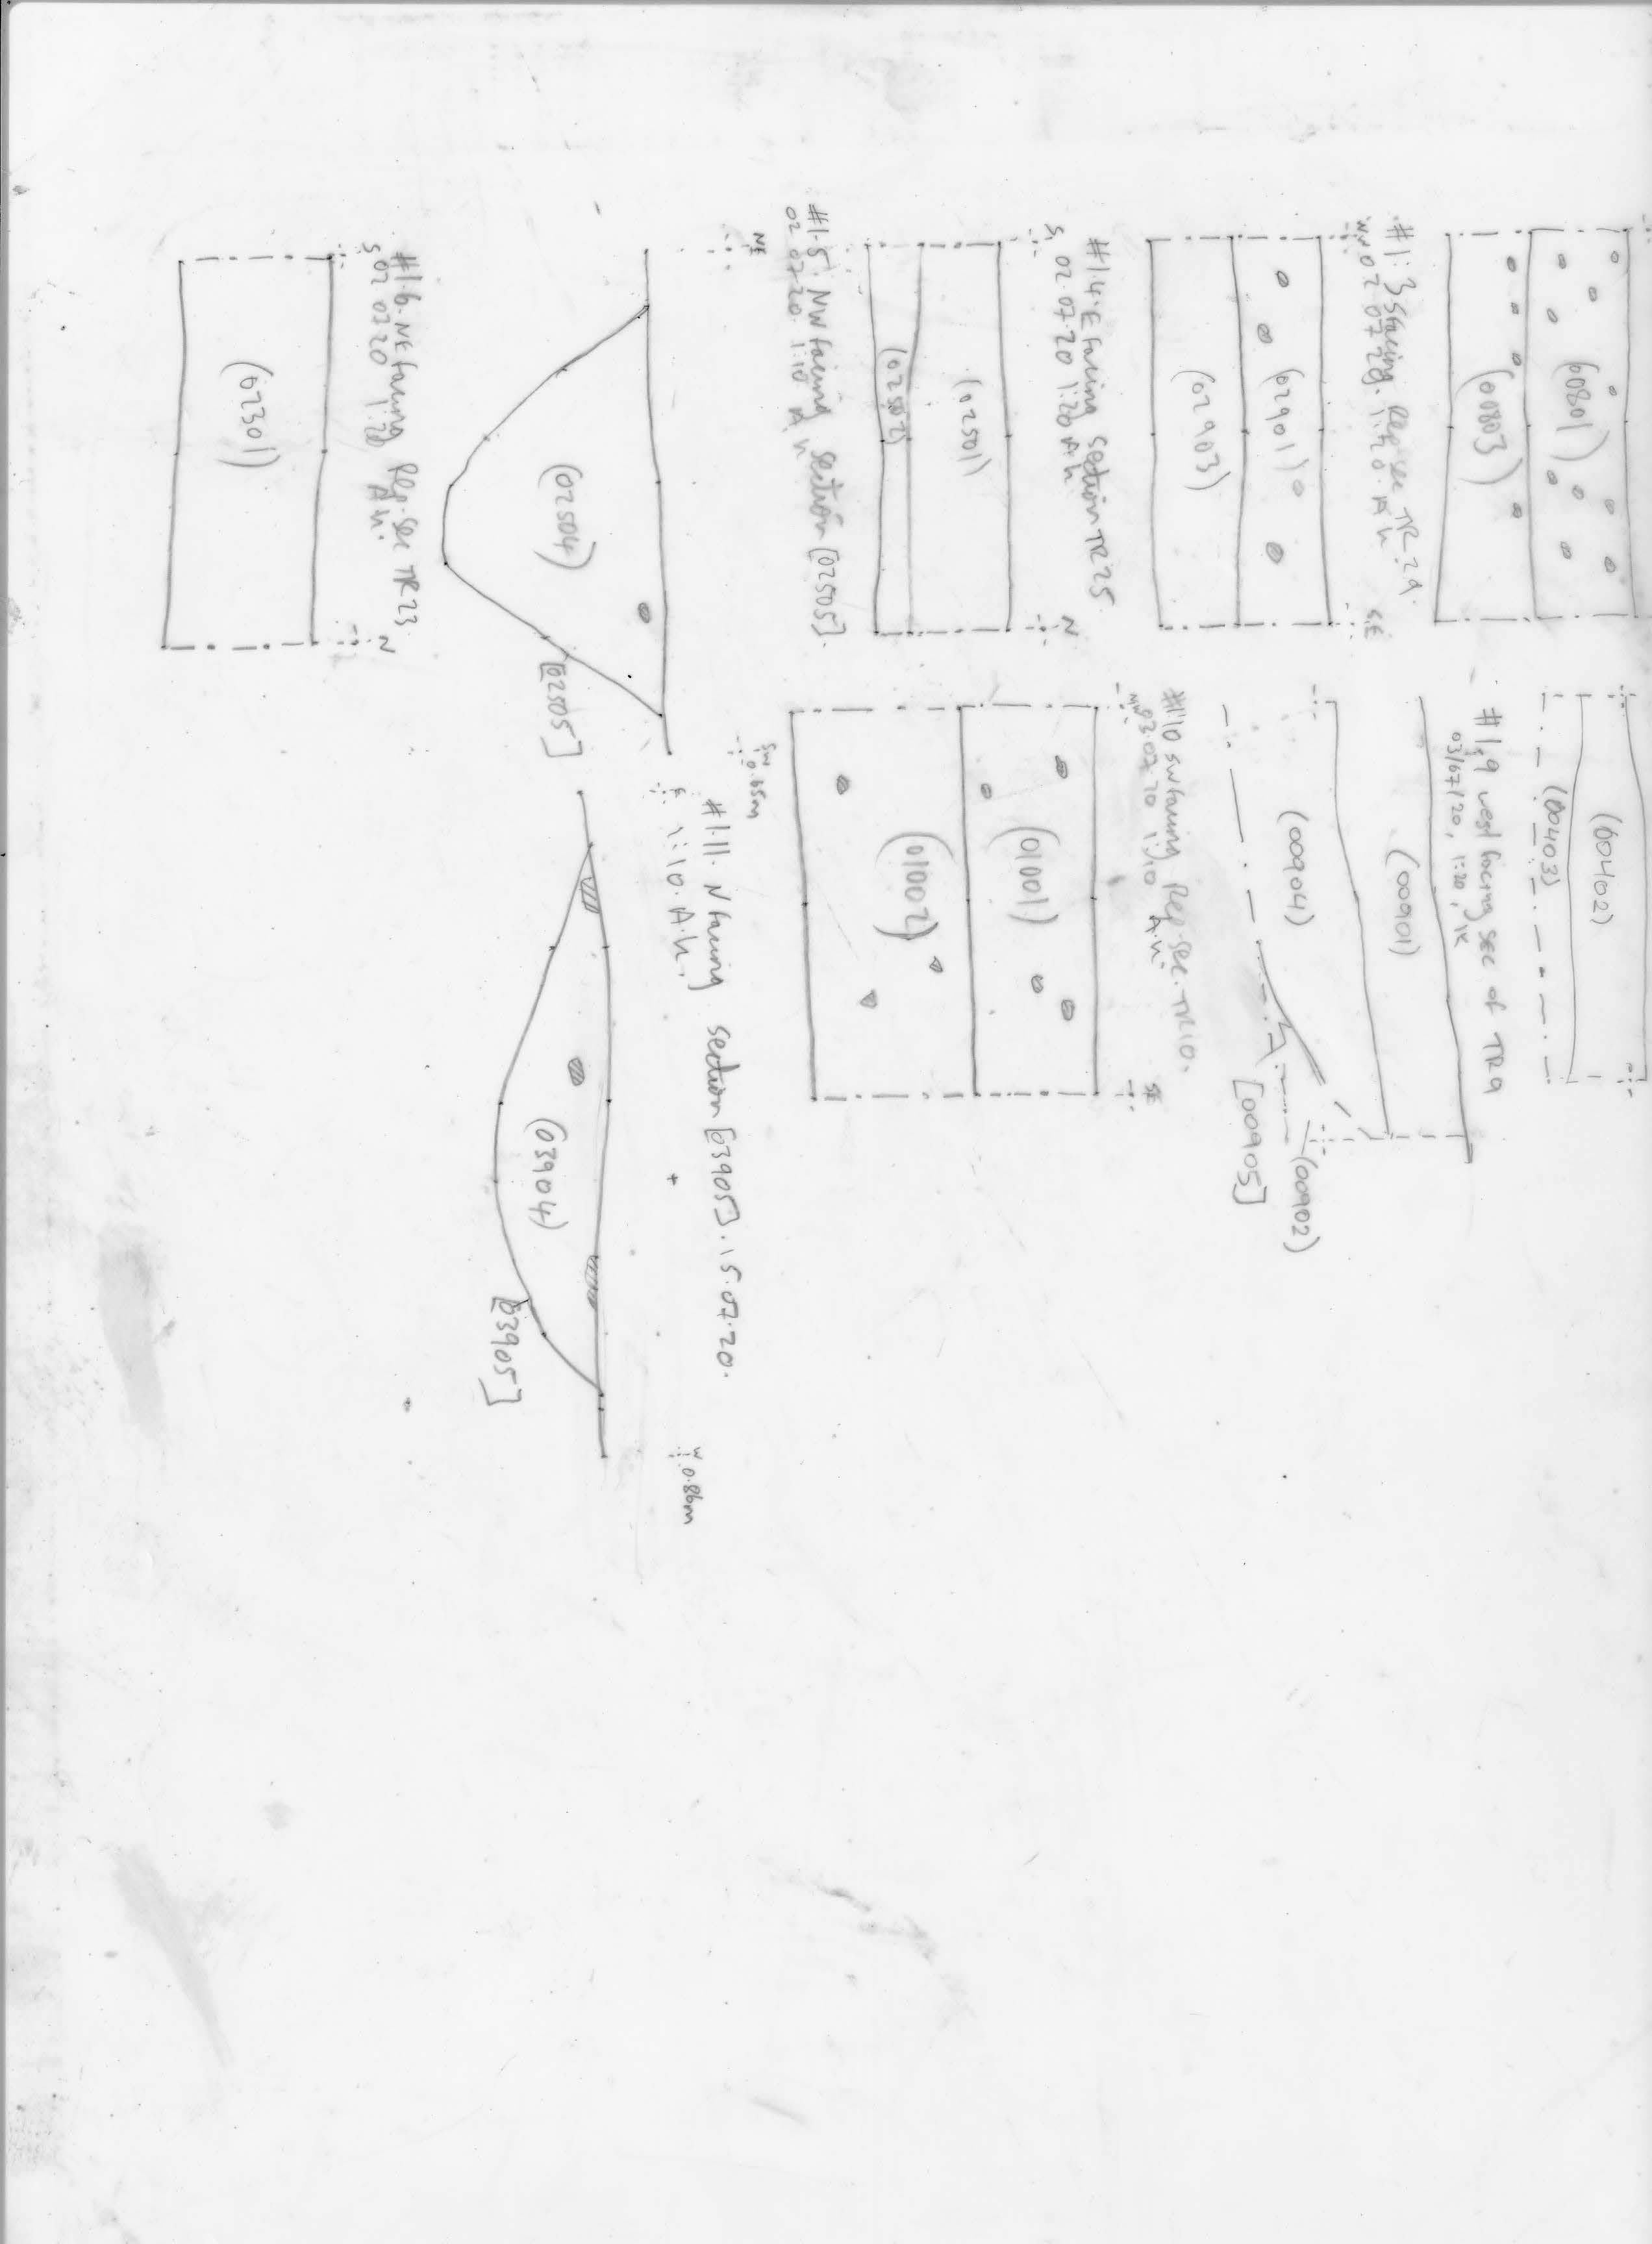 (00801)
(00803)
#1.3 S facing. Rep sec TR 29.
NW 02 07 20. 1:20. AH
SE
(02901)
(02903)
#1.4. E facing section TR25.
S. 02.07.20 1:20 AH
N
(02501)
(02502)
#1.5. NW facing section [02505].
02 07 20. 1:10 AH
NE
SW 0.65m
(02504)
[02505]
#1.6. NE facing Rep. sec TR23.
S 02 07 20 1:20 AH.
N
(02301)
(00402)
(00403)
#1.9 west facing sec of TR9
03/07/20, 1:20, JK
(00901)
(00904)
(00902)
[00905]
#1.10 SW facing Rep sec. TR10.
NW. 03.07.20 1:10 AH.
SE
(01001)
(01002)
#1.11. N facing section [03905]. 15.07.20.
E 1:10. A.H.
W 0.86m
(03904)
[03905]